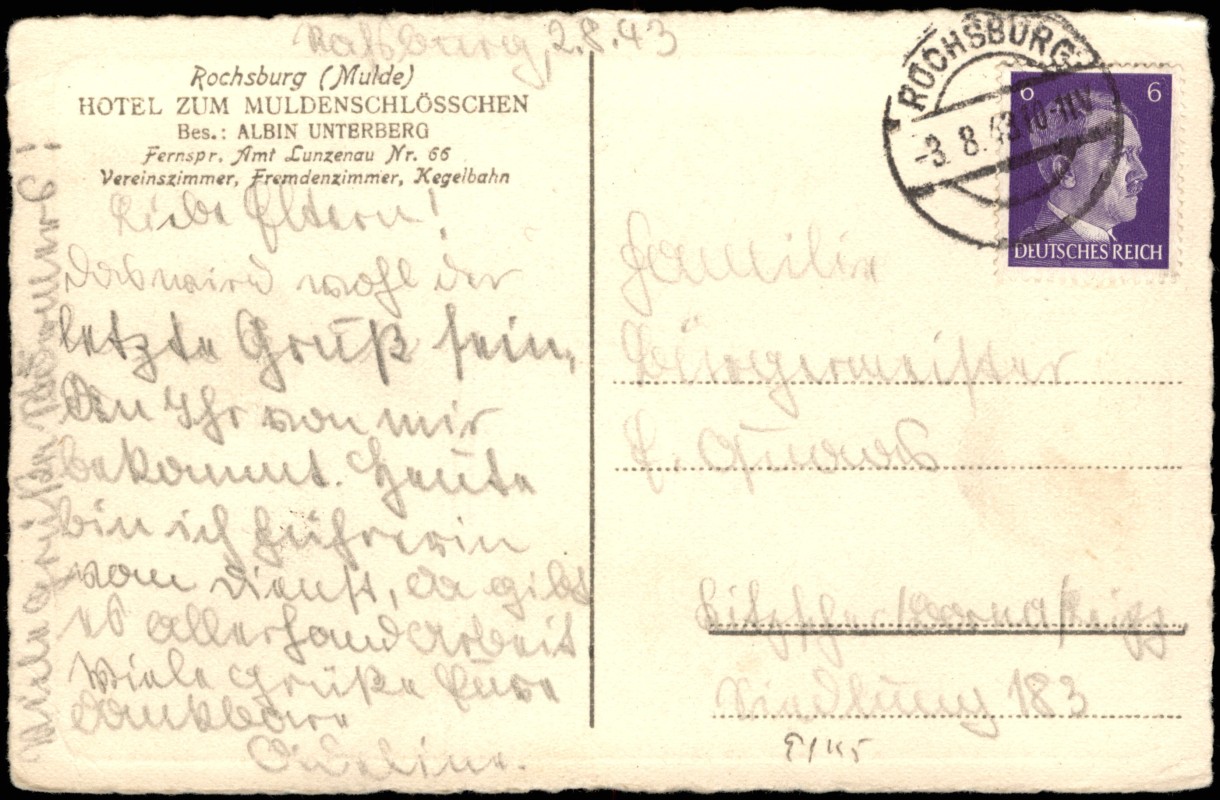 Rochsburg 2.8.43
Rochsburg (Mulde)
HOTEL ZUM MULDENSCHLÖSSCHEN
Bes.: ALBIN UNTERBERG
Fernspr. Amt Lunzenau Nr. 66
Vereinszimmer, Fremdenzimmer, Kegelbahn
Liebe Eltern!
Das wird wohl der
letzte Gruß sein,
den Ihr von mir
bekommt. Heute
bin ich Führerin
vom Dienst, da gibt
es allerhand Arbeit.
Viele Grüße Eure
dankbare
Viele Grüße
ROCHSBURG
-3.8.43.10-11V
6 6
DEUTSCHES REICH
Familie
Bürgermeister
E.
Siedlung 183